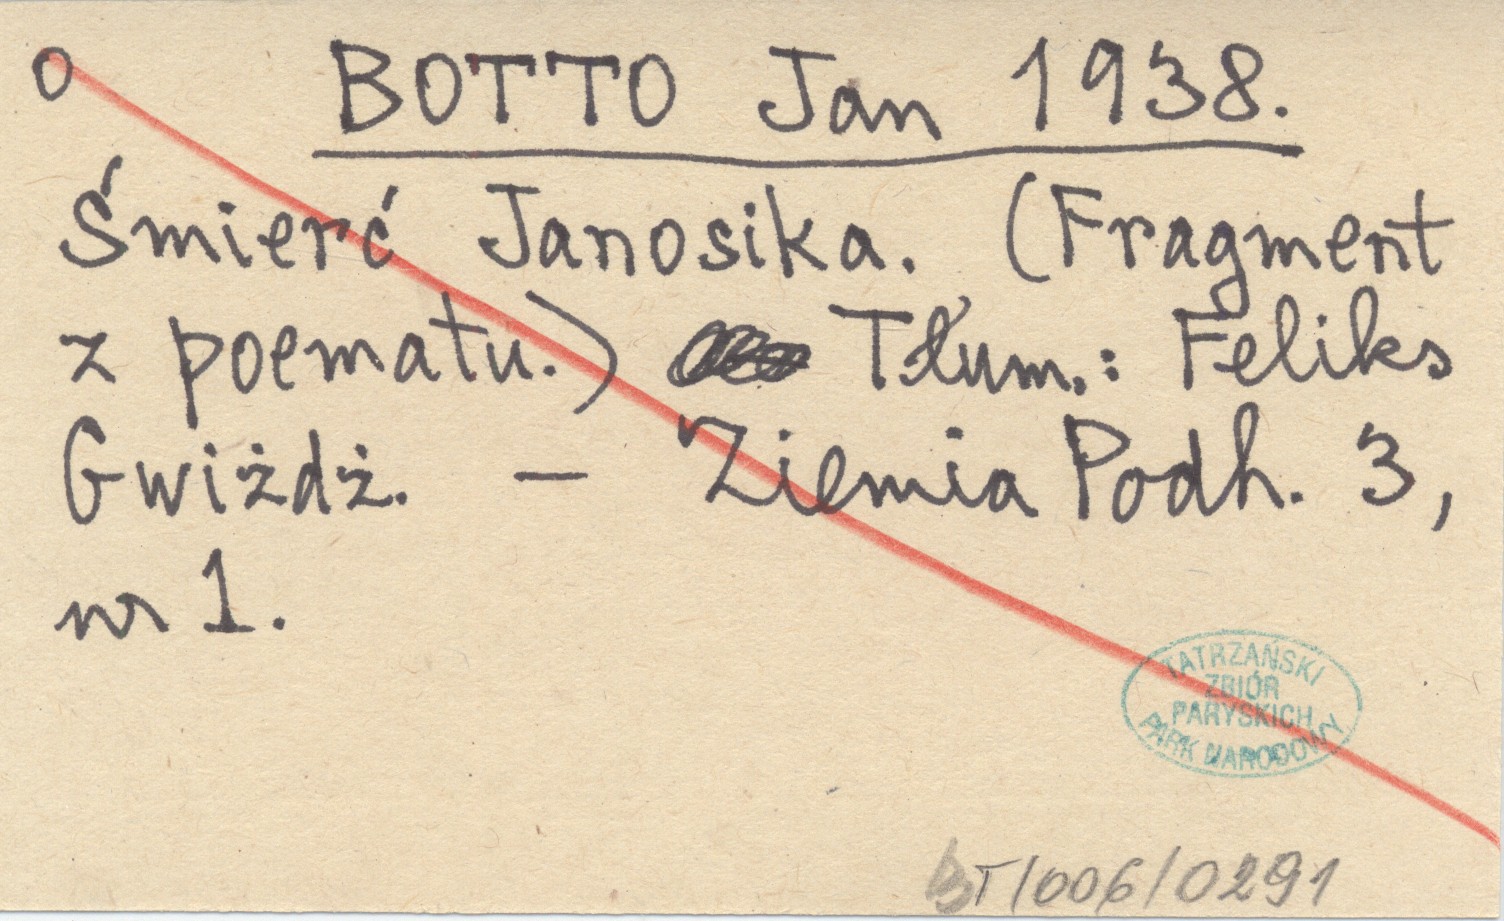 o BOTTO Jan 1938.
Śmierć Janosika. (Fragment
z poematu.) Tłum.: Feliks
Gwiżdż. – Ziemia Podh. 3,
nr 1.
TATRZAŃSKI
ZBIÓR
PARYSKICH
PARK NARODOWY
BT/006/0291